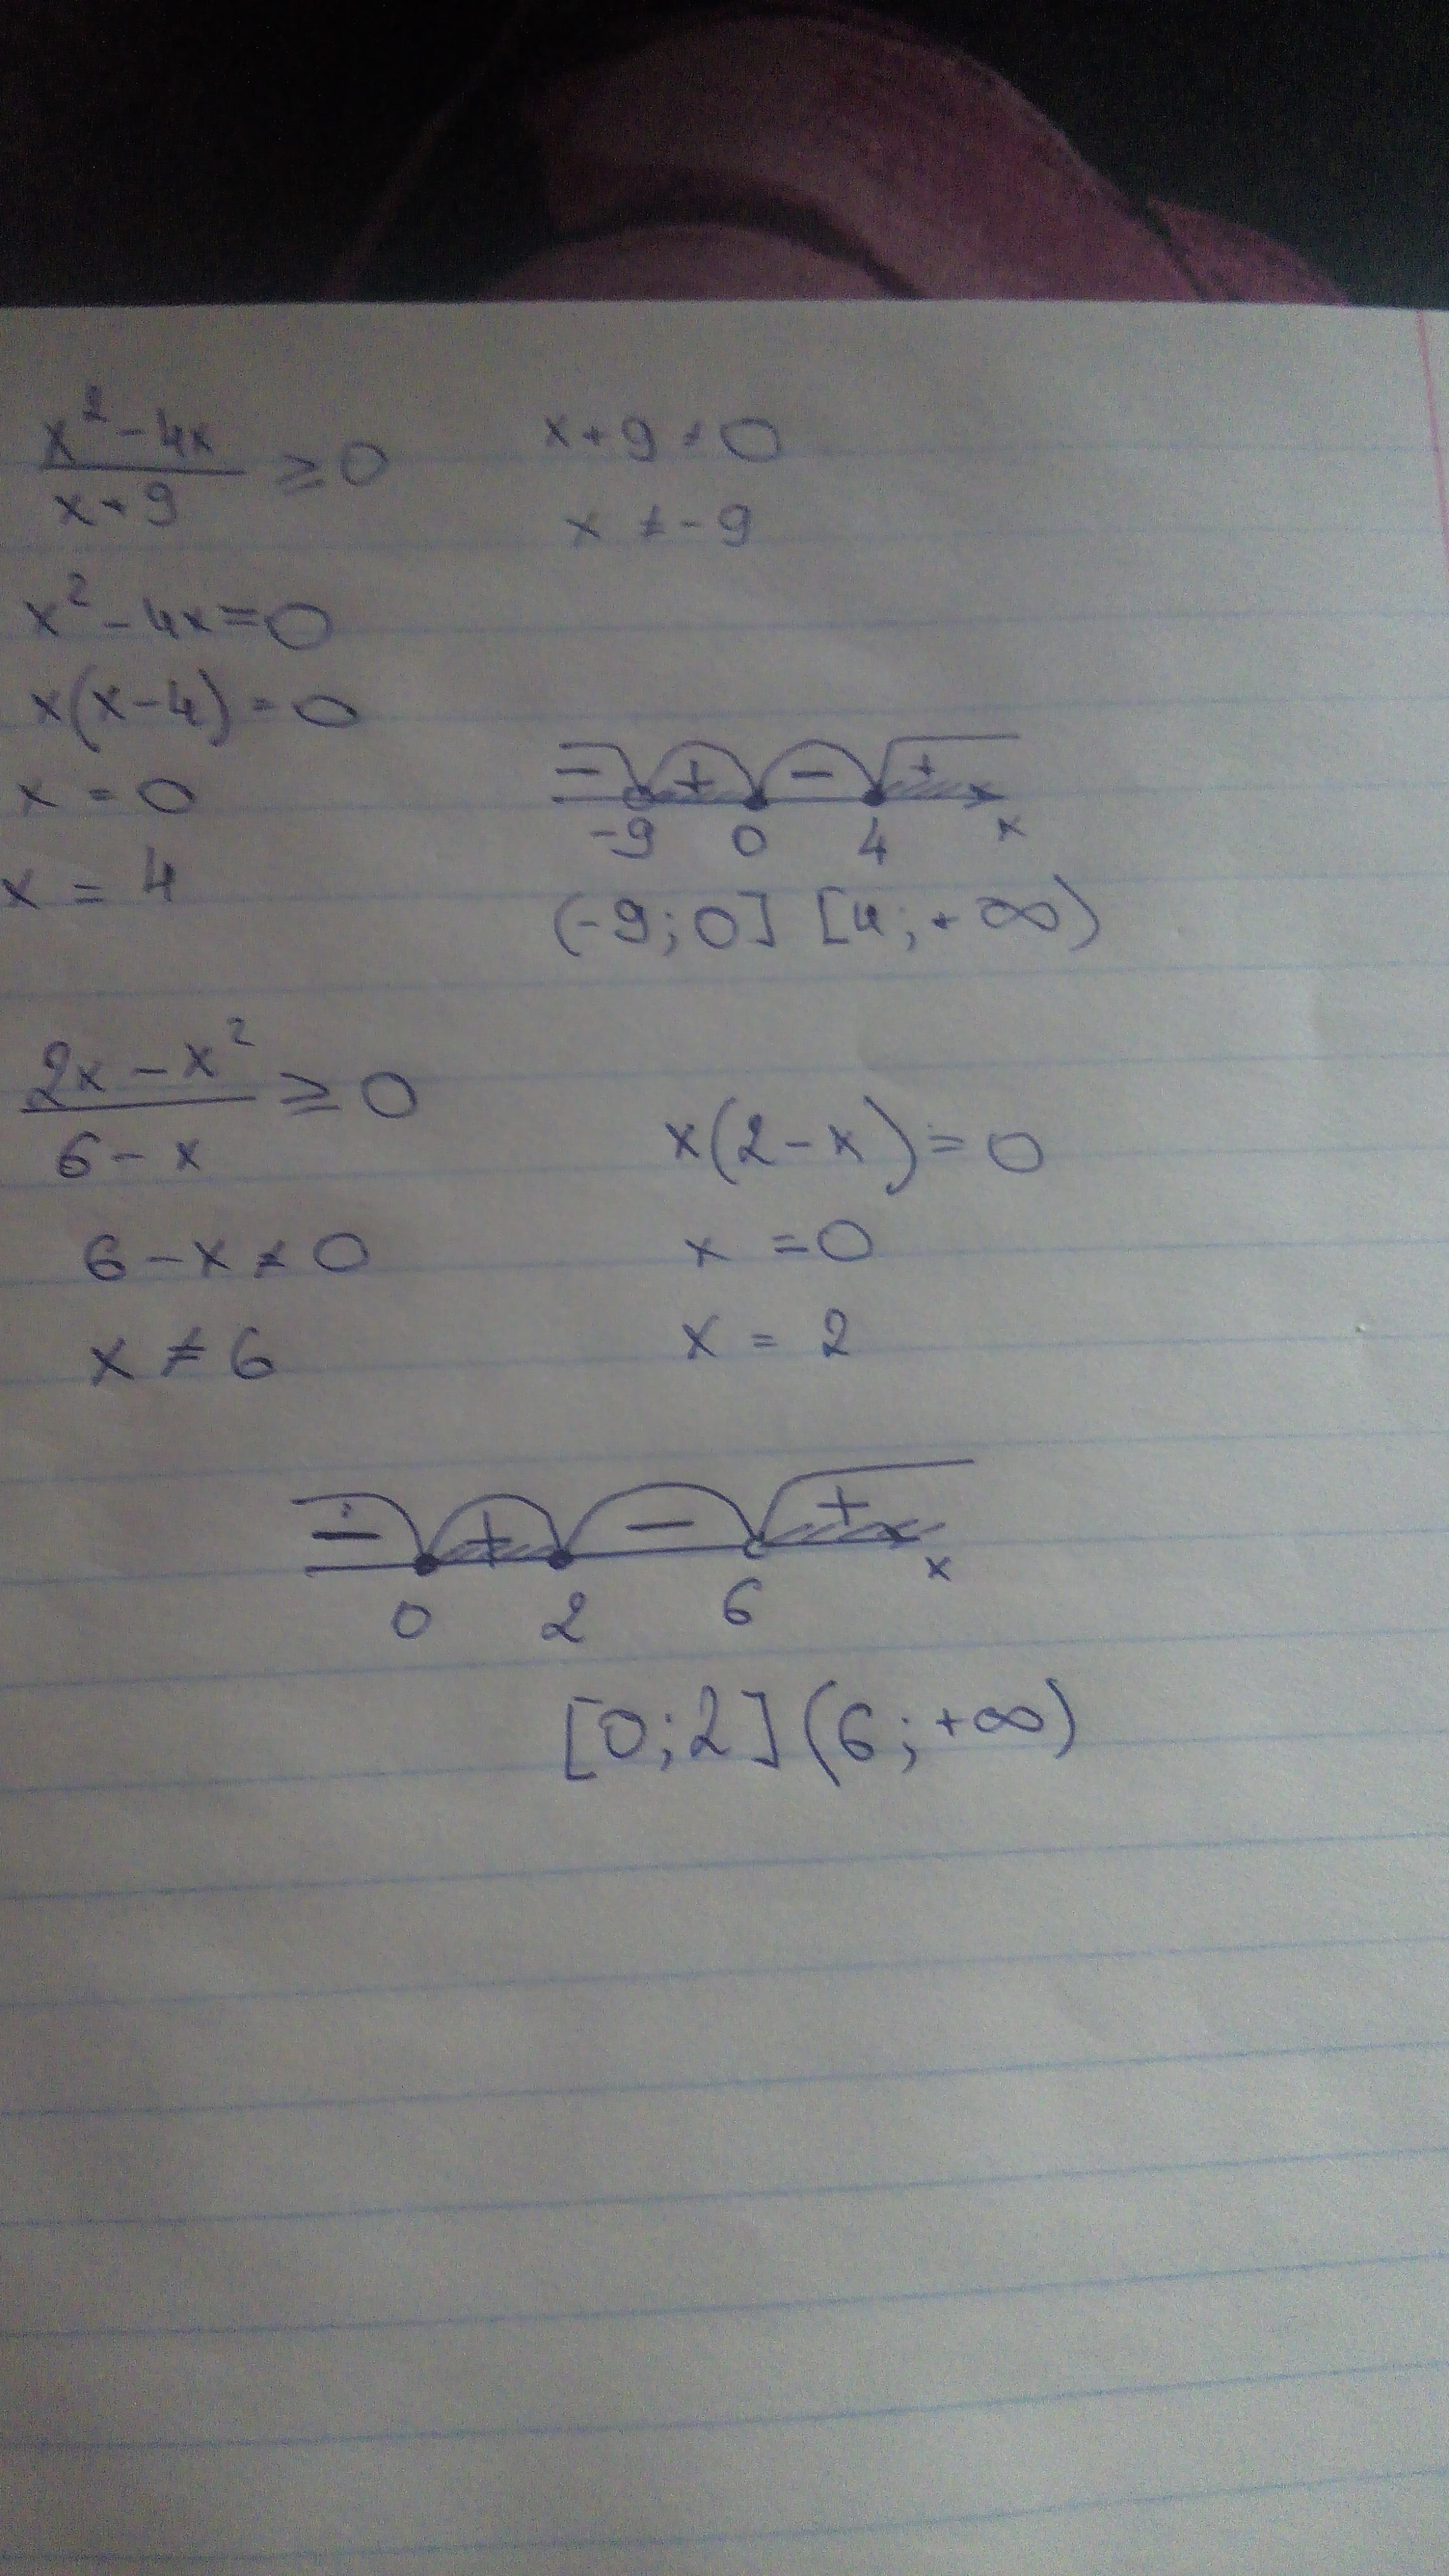 x² - 4x / x + 9 ≥ 0
x + 9 ≠ 0
x ≠ - 9
x² - 4x = 0
x(x - 4) = 0
x = 0
x = 4
- + - +
-9 0 4 x
(-9; 0] [4; + ∞)
2x - x² / 6 - x ≥ 0
6 - x ≠ 0
x ≠ 6
x(2 - x) = 0
x = 0
x = 2
- + - +
0 2 6 x
[0; 2] (6; +∞)